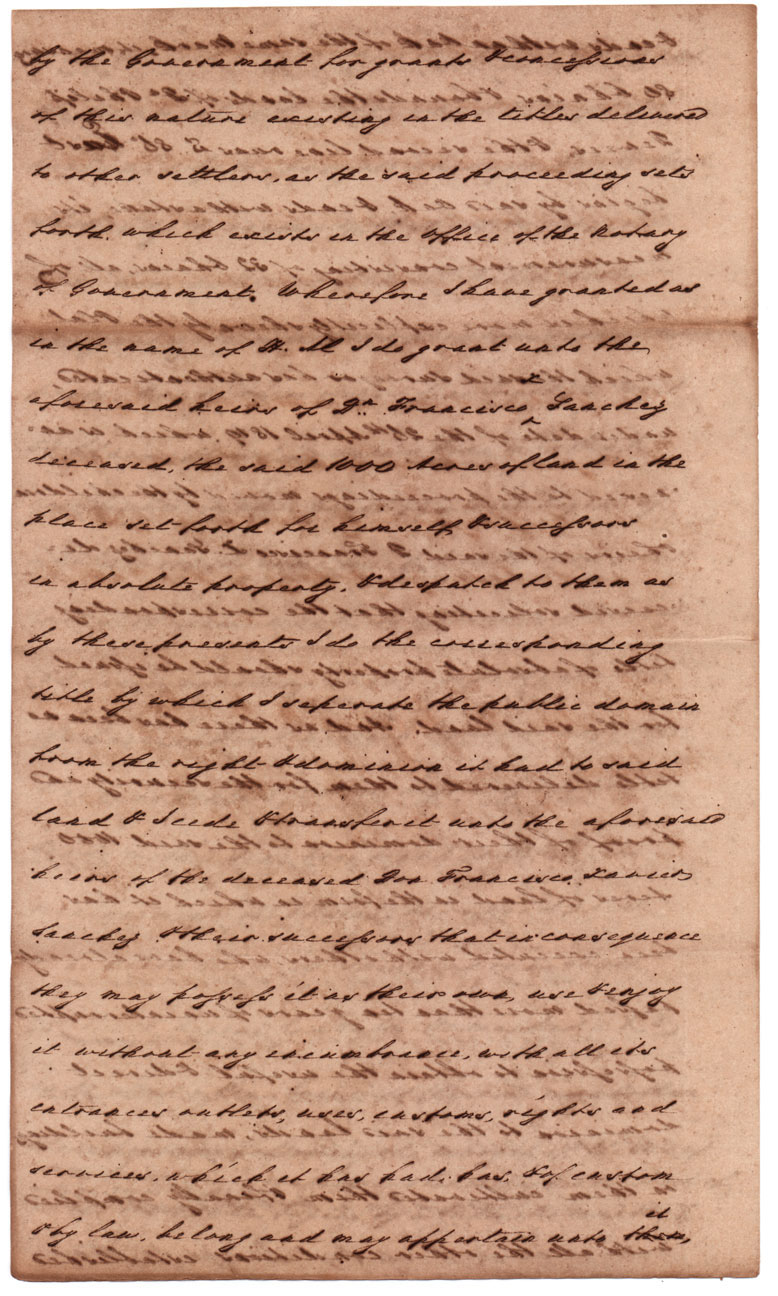 by the Government for grants & concessions
of this nature existing in the titles delivered
to other settlers, as the said proceeding sets
forth, which exists in the Office of the Notary
of Government. Wherefore I have granted as
in the name of H. M I do grant unto the
aforesaid heirs of Dn. Francisco ^ Sanchez
deceased, the said 1000 Acres of land in the
place set forth for himself & successors
in absolute property, & despatch to them as
by these presents I do the corresponding
title by which I seperate the public domain
from the right & dominion it had to said
land & I cede & transfer it unto the aforesaid
heirs of the deceased Don Francisco Xavier
Sanchez & their successors that in consequence
they may possess it as their own, use & enjoy
it without any incumbrance, with all its
entrances outlets, uses, customs, rights and
services, which it has had, has, & of custom
it
& by law, belong and may appertain unto them,